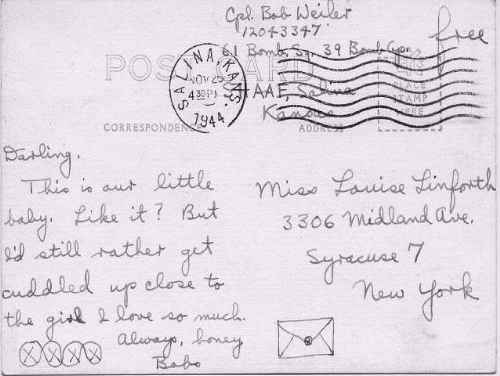 Cpl. Bob Weiler
12043347
61 Bomb. Sq. 39 Bomb Grp.
SHAAF, Salina
Kansas
free
POSTCARD
SALINA, KANS.
NOV 25
430 PM
1944
PLACE
STAMP
HERE
CORRESPONDENCE
ADDRESS
Darling,
This is our little
baby. Like it? But
I'd still rather get
cuddled up close to
the girl I love so much.
Always, honey
Bobo
Miss Louise Linforth
3306 Midland Ave.
Syracuse 7
New York
X X X X